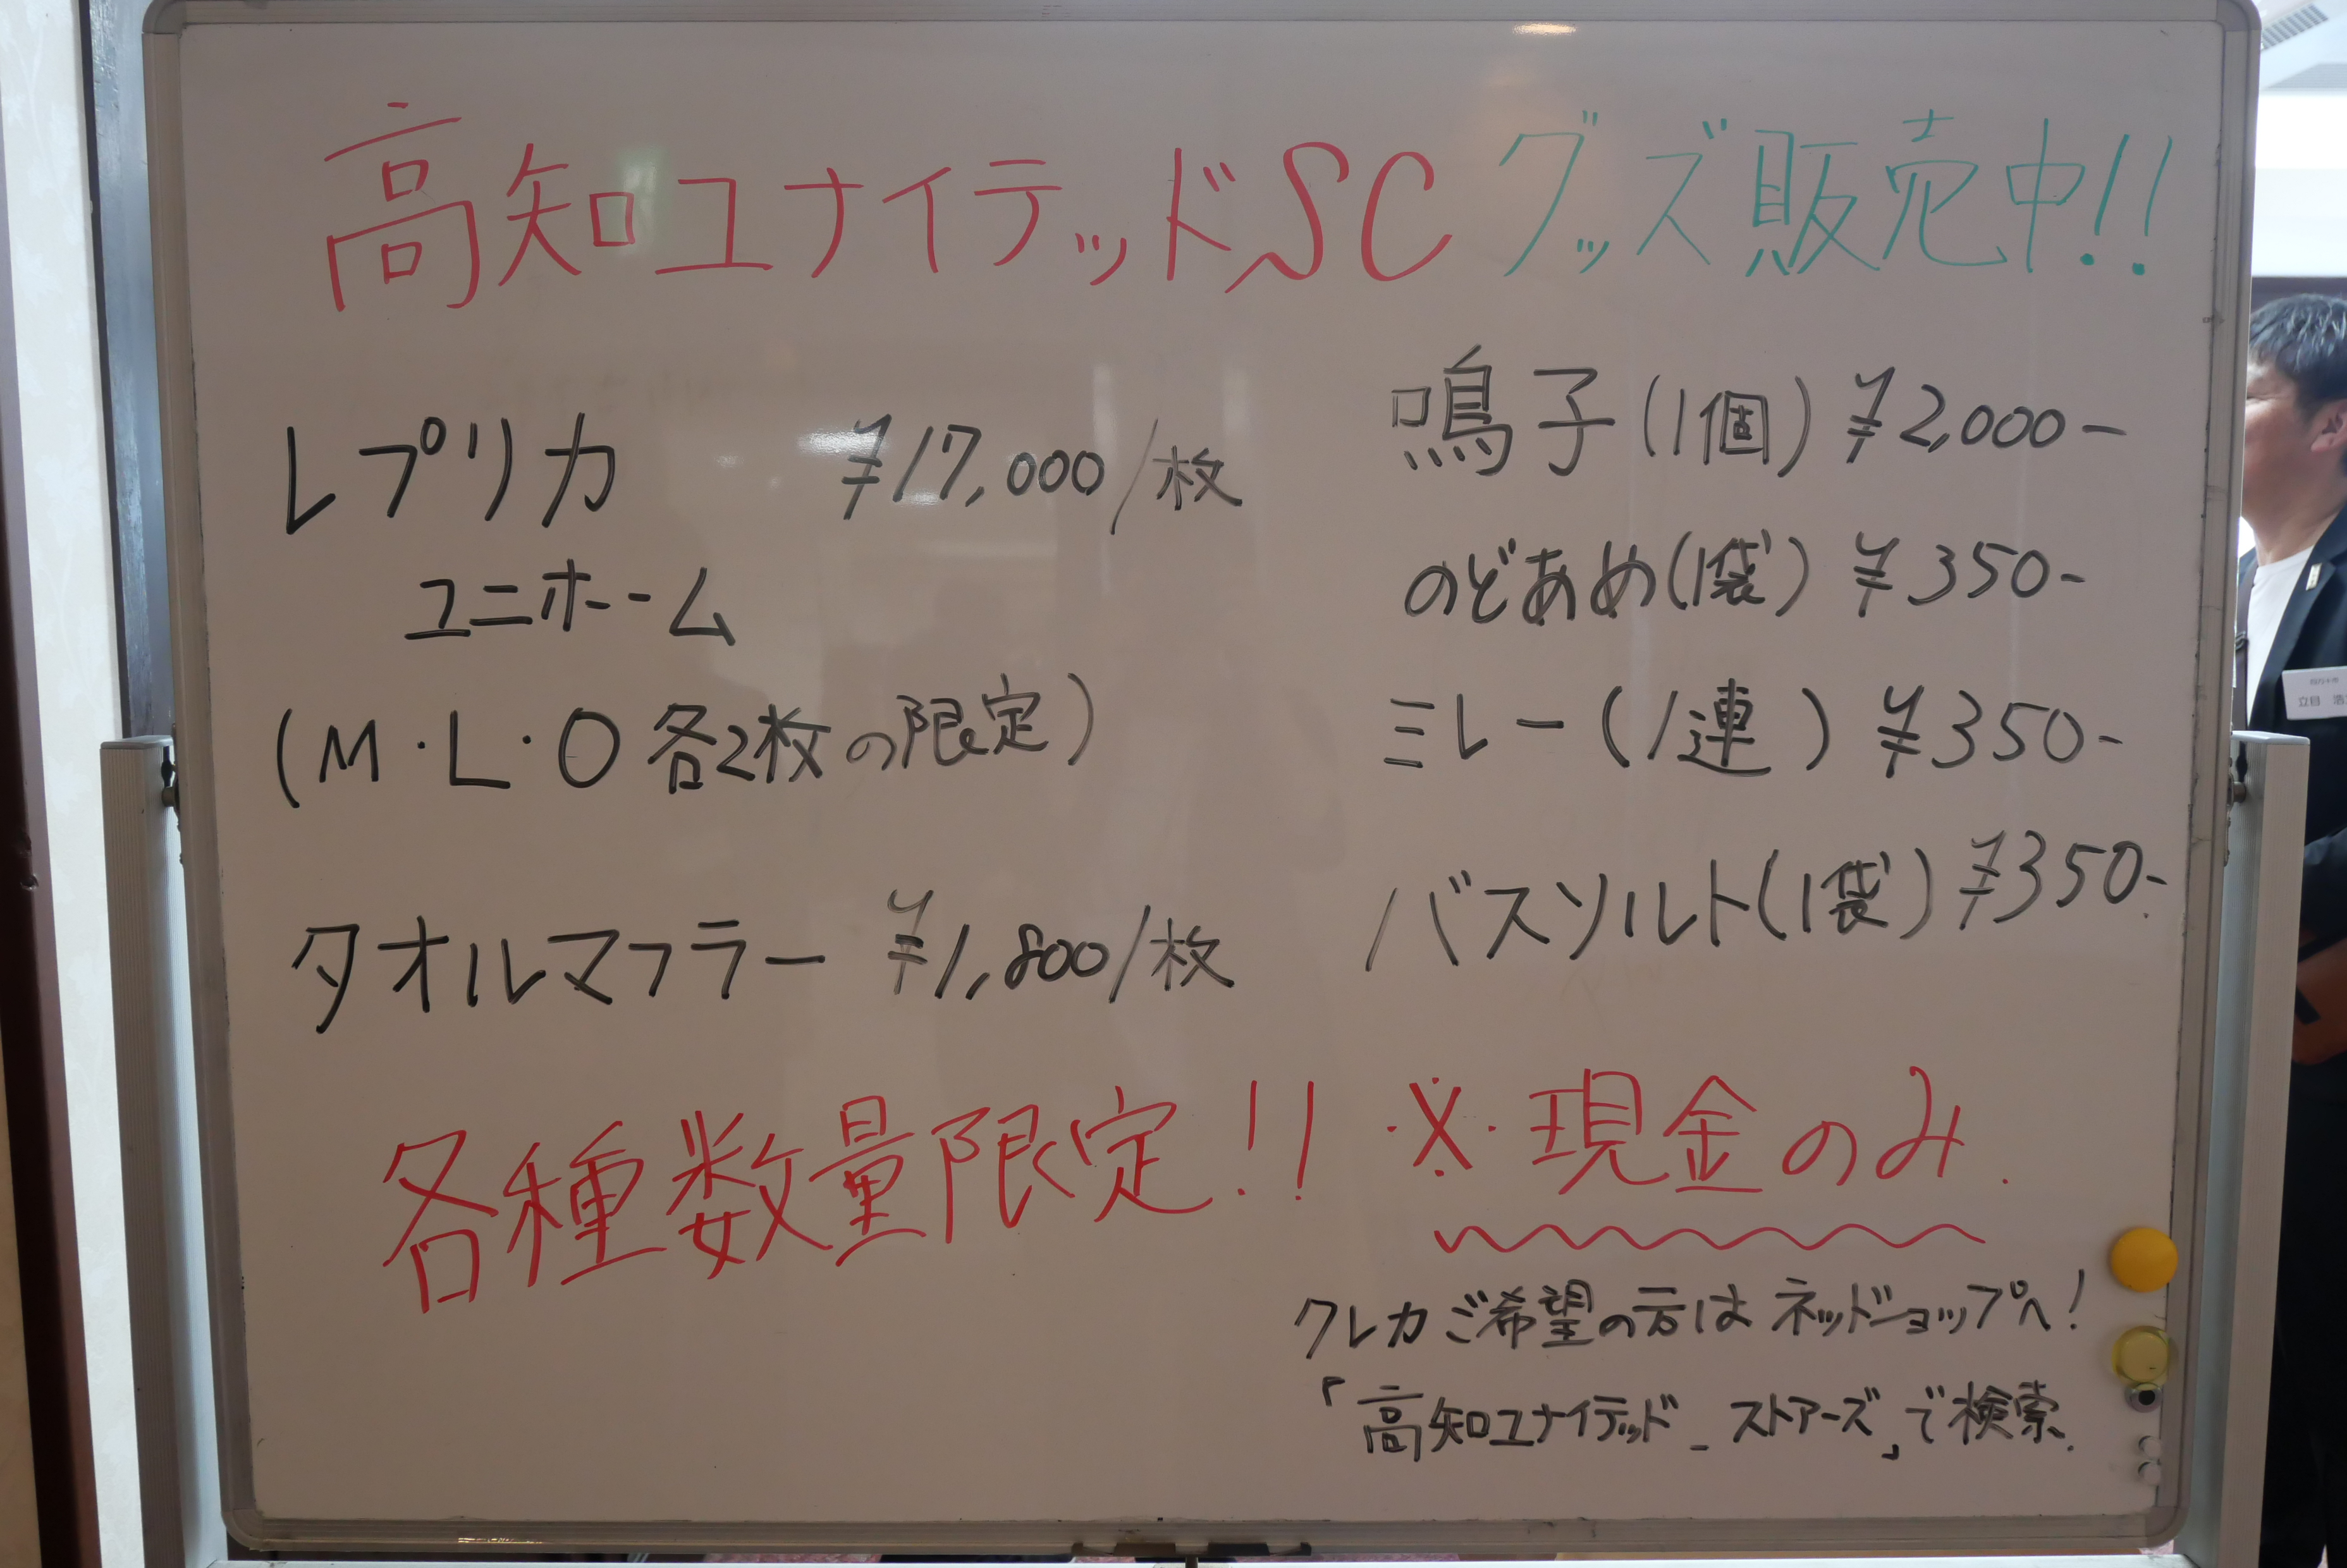 高知ユナイテッドSC グッズ販売中!!
レプリカ ¥17,000/枚
ユニホーム
(M・L・O 各2枚の限定)
タオルマフラー ¥1,800/枚
各種数量限定!!
鳴子(1個) ¥2,000-
のどあめ(1袋) ¥350-
ミレー(1連) ¥350-
バスソルト(1袋) ¥350-
※現金のみ.
クレカご希望の方はネットショップへ!
「高知ユナイテッド_ストアーズ」で検索.
立目